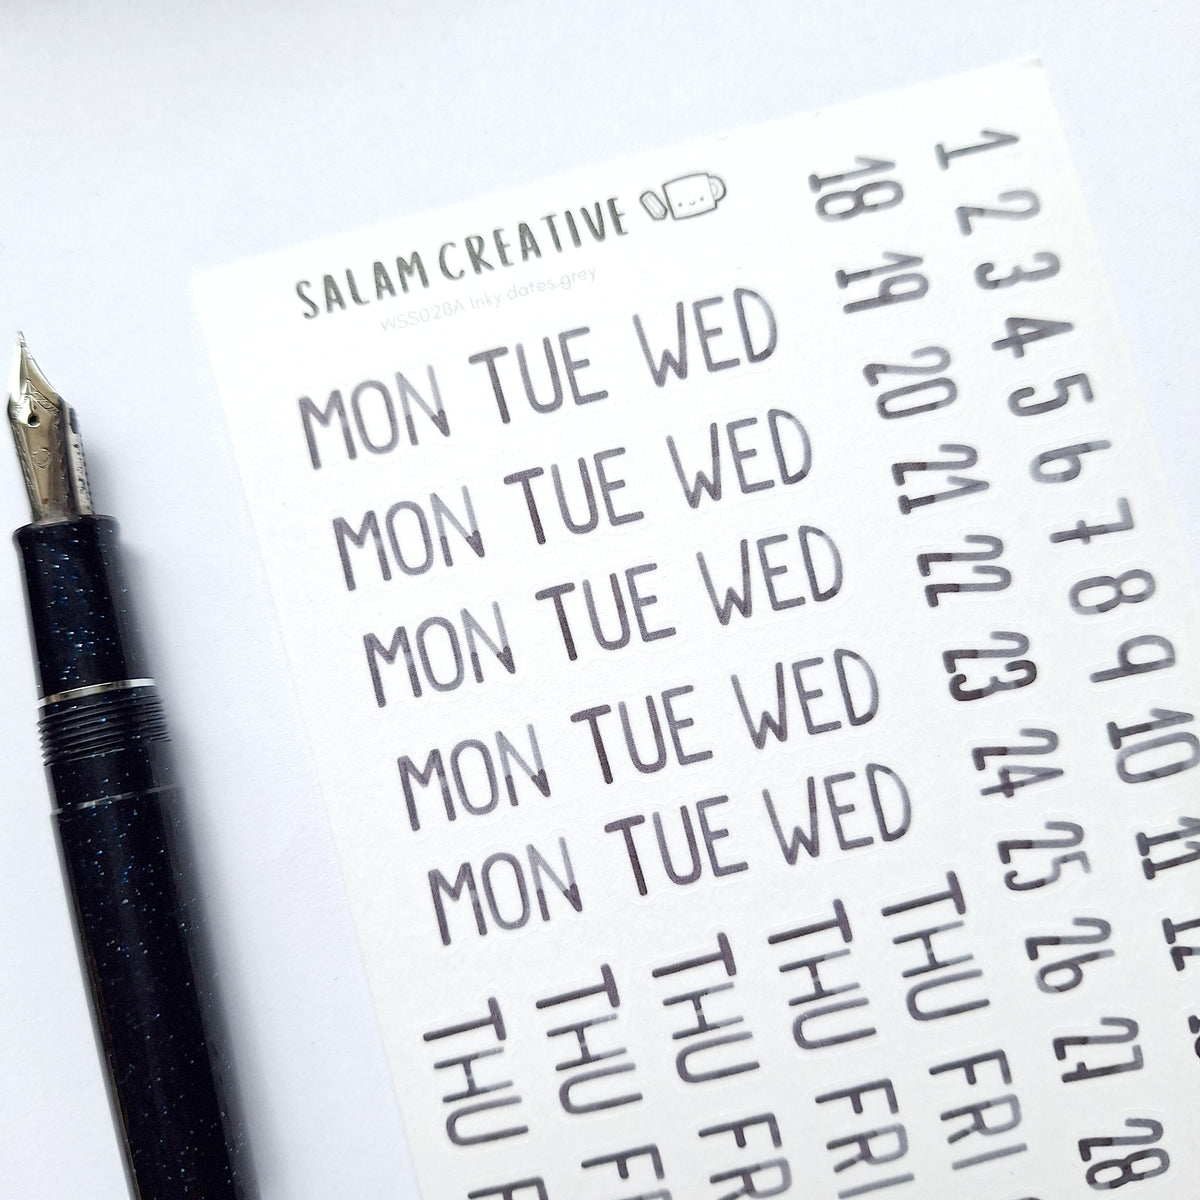 SALAM CREATIVE
WSS028A Inky dates.grey
MON TUE WED
MON TUE WED
MON TUE WED
MON TUE WED
MON TUE WED
THU THU THU THU THU
FRI FRI
1 2 3 4 5 6 7 8 9 10 11
18 19 20 21 22 23 24 25 26 27 28